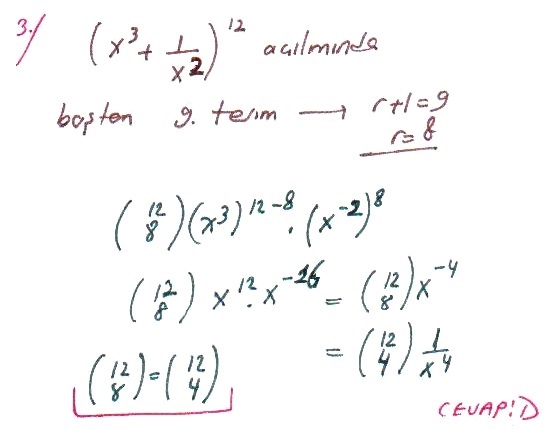 3./ (x³ + 1/x²)¹² acılmında
baştan 9. terim → r+1=9
r=8
(12 8)(x³)¹²⁻⁸ . (x⁻²)⁸
(12 8) x¹² . x⁻¹⁶ = (12 8) x⁻⁴
(12 8) = (12 4) = (12 4) 1/x⁴
CEVAP: D